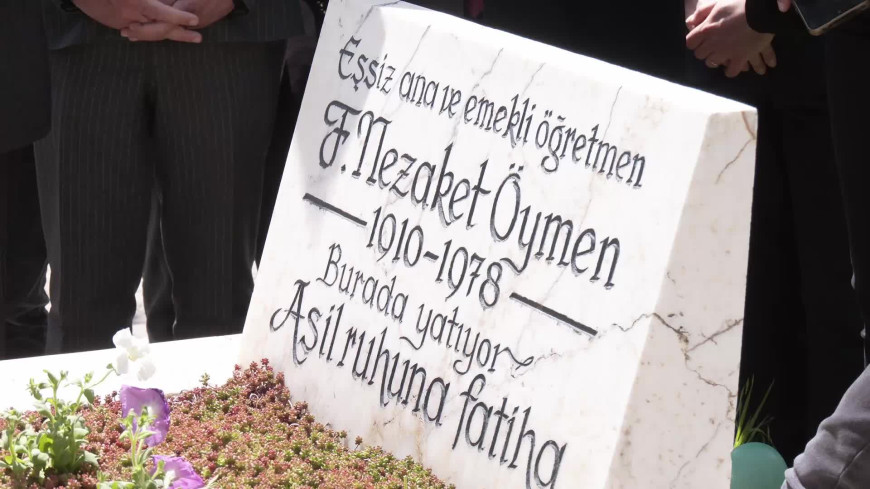 Eşsiz ana ve emekli öğretmen
F. Nezaket Öymen
1910-1978
Burada yatıyor
Asil ruhuna fatiha